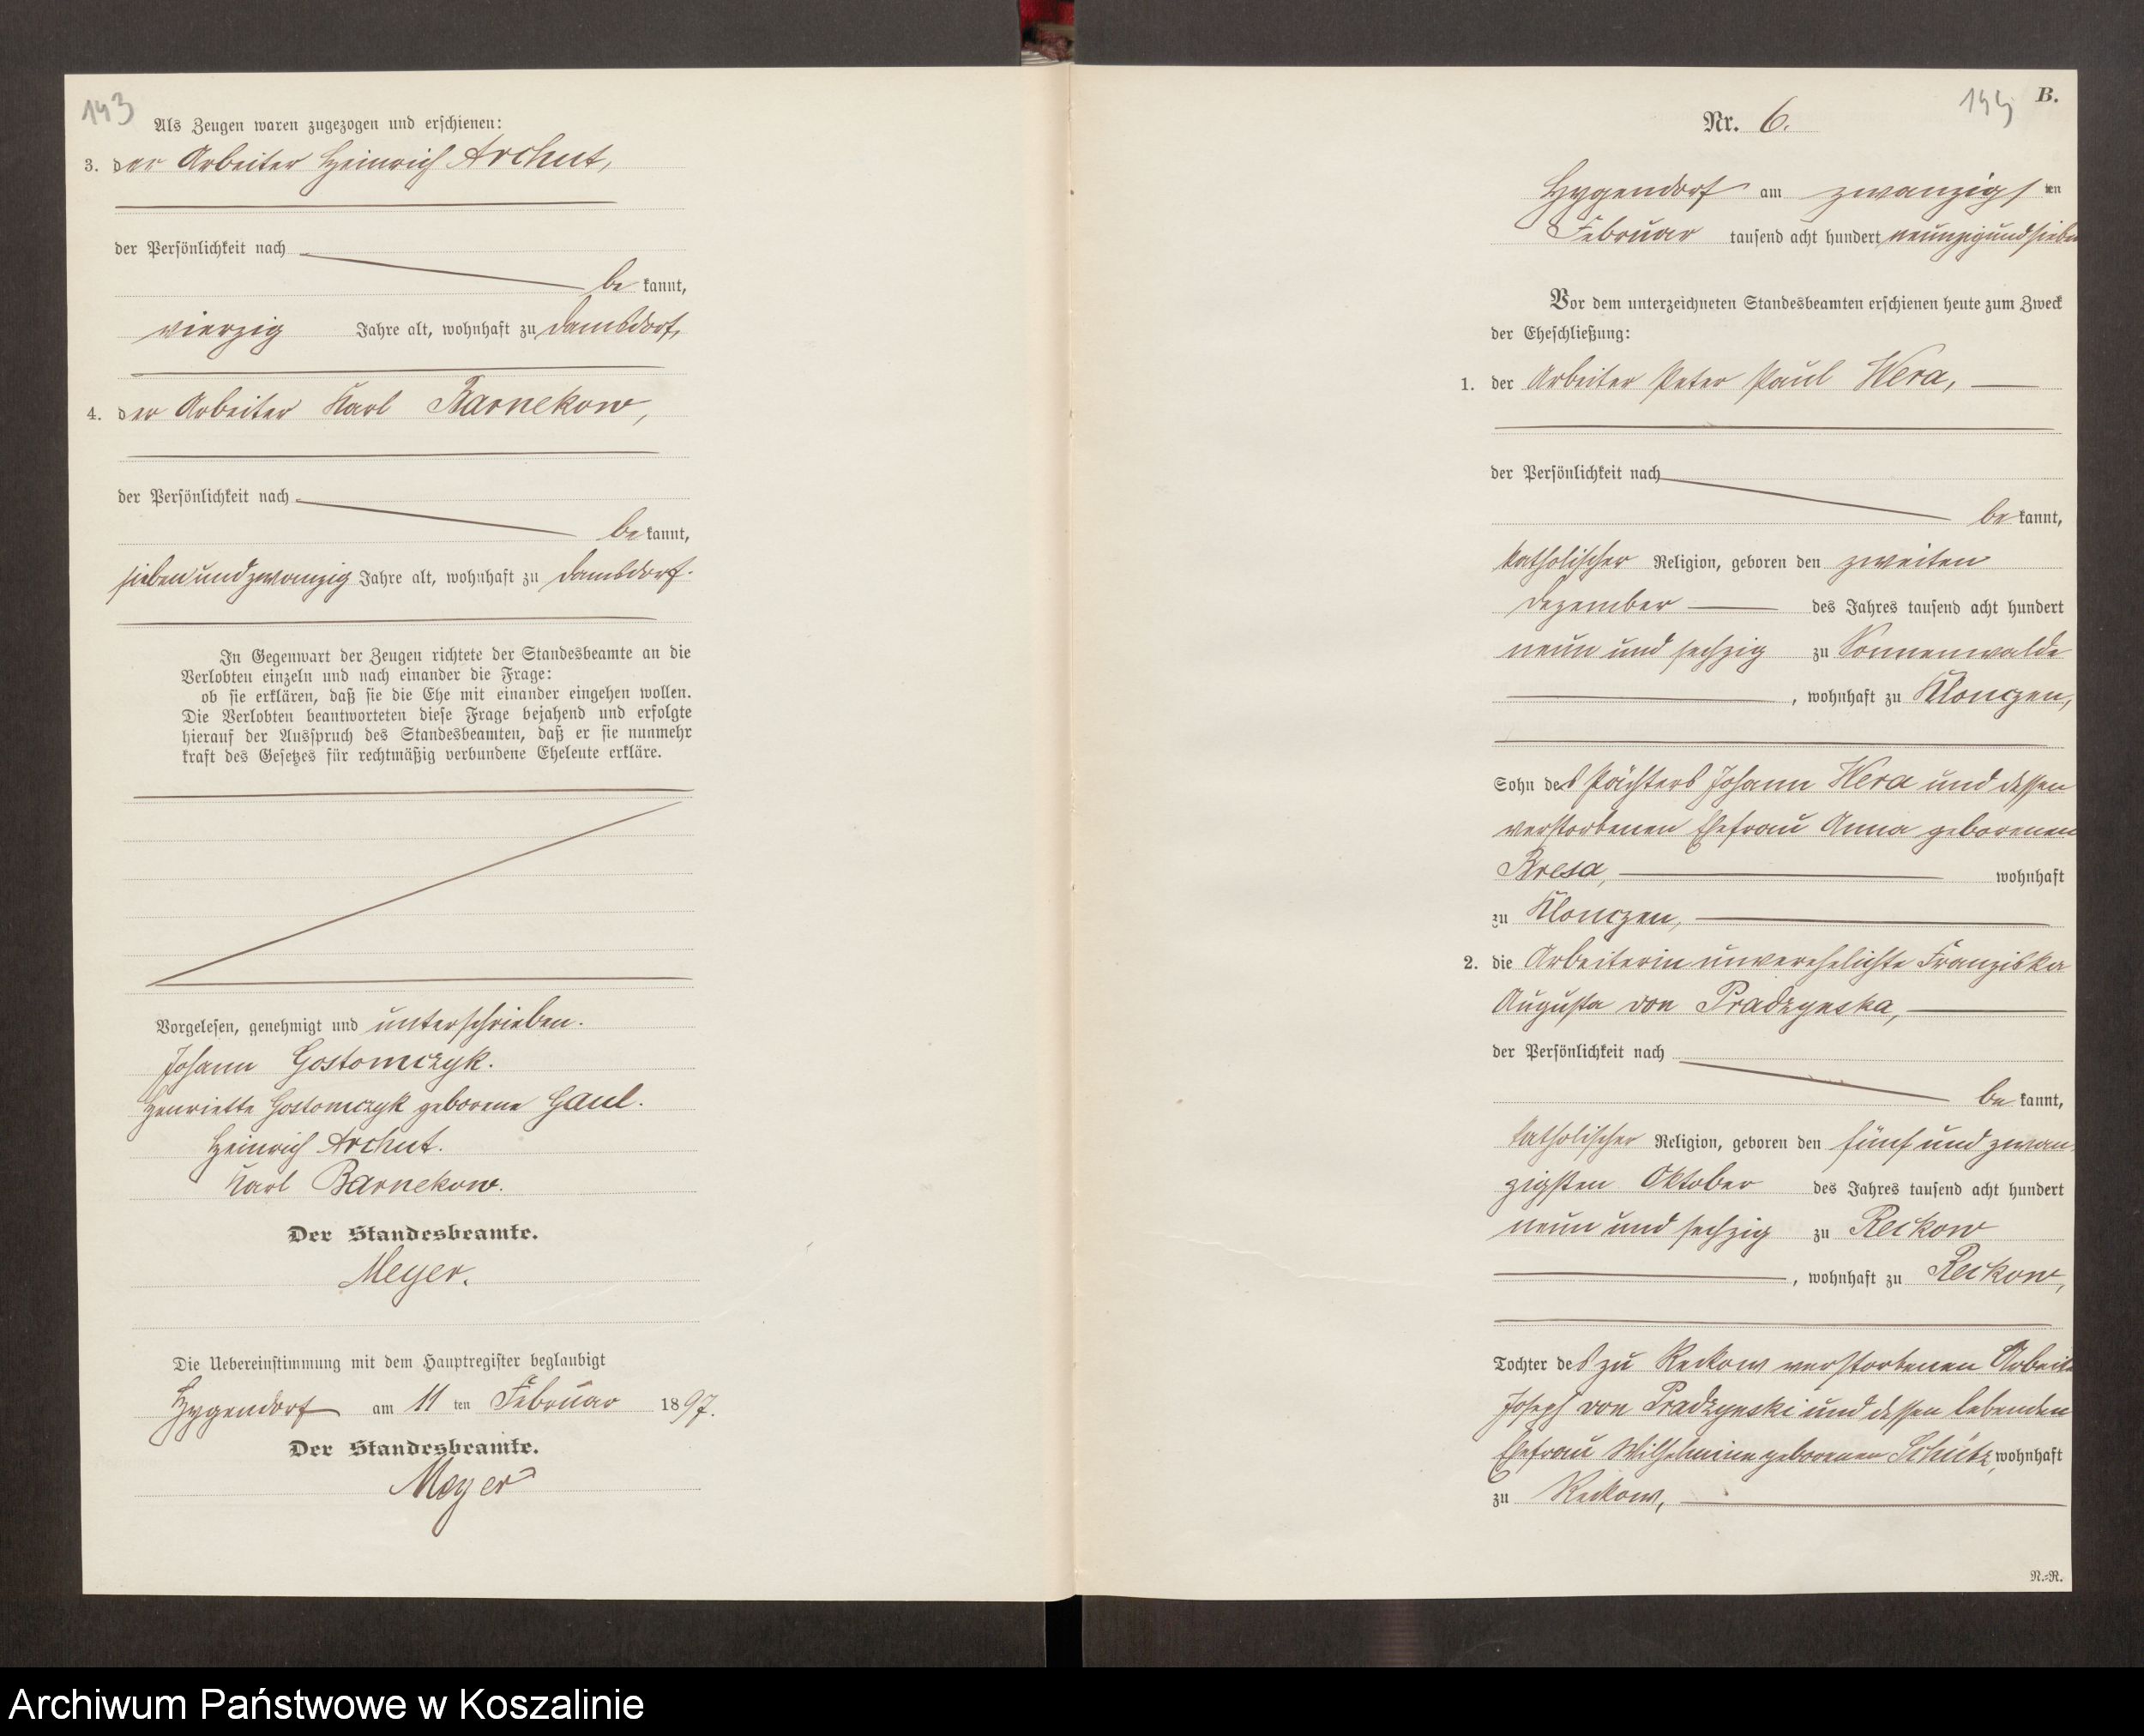 143
Als Zeugen waren zugezogen und erschienen:
3. der Arbeiter Heinrich Archut,
der Persönlichkeit nach
be kannt,
vierzig Jahre alt, wohnhaft zu Damsdorf,
4. der Arbeiter Karl Barnekow,
der Persönlichkeit nach
be kannt,
siebenundzwanzig Jahre alt, wohnhaft zu Damsdorf.
In Gegenwart der Zeugen richtete der Standesbeamte an die
Verlobten einzeln und nach einander die Frage:
ob sie erklären, daß sie die Ehe mit einander eingehen wollen.
Die Verlobten beantworteten diese Frage bejahend und erfolgte
hierauf der Ausspruch des Standesbeamten, daß er sie nunmehr
kraft des Gesetzes für rechtmäßig verbundene Eheleute erkläre.
Vorgelesen, genehmigt und unterschrieben.
Johann Gostomczyk.
Henriette Gostomczyk geborene Gaul.
Heinrich Archut.
Karl Barnekow.
Der Standesbeamte.
Meyer.
Die Uebereinstimmung mit dem Hauptregister beglaubigt
Hygendorf am 11 ten Februar 1897.
Der Standesbeamte.
Meyer
144 B.
Nr. 6.
Hygendorf am zwanzigs ten
Februar tausend acht hundert neunzigundsieben
Vor dem unterzeichneten Standesbeamten erschienen heute zum Zweck
der Eheschließung:
1. der Arbeiter Peter Paul Wera,
der Persönlichkeit nach
be kannt,
katholischer Religion, geboren den zweiten
Dezember des Jahres tausend acht hundert
neun und sechzig zu Sonnenwalde
, wohnhaft zu Klonczen,
Sohn des Pächters Johann Wera und dessen
verstorbenen Ehefrau Anna geborenen
Bresa, wohnhaft
zu Klonczen,
2. die Arbeiterin unverehelichte Franziska
Augusta von Pradzynska,
der Persönlichkeit nach
be kannt,
katholischer Religion, geboren den fünf und zwan
zigsten Oktober des Jahres tausend acht hundert
neun und sechzig zu Reckow
, wohnhaft zu Reckow,
Tochter des zu Reckow verstorbenen Arbeite
Joseph von Pradzynski und dessen lebenden
Ehefrau Wilhelmine geborenen Schütz, wohnhaft
zu Reckow,
N.=R.
Archiwum Państwowe w Koszalinie